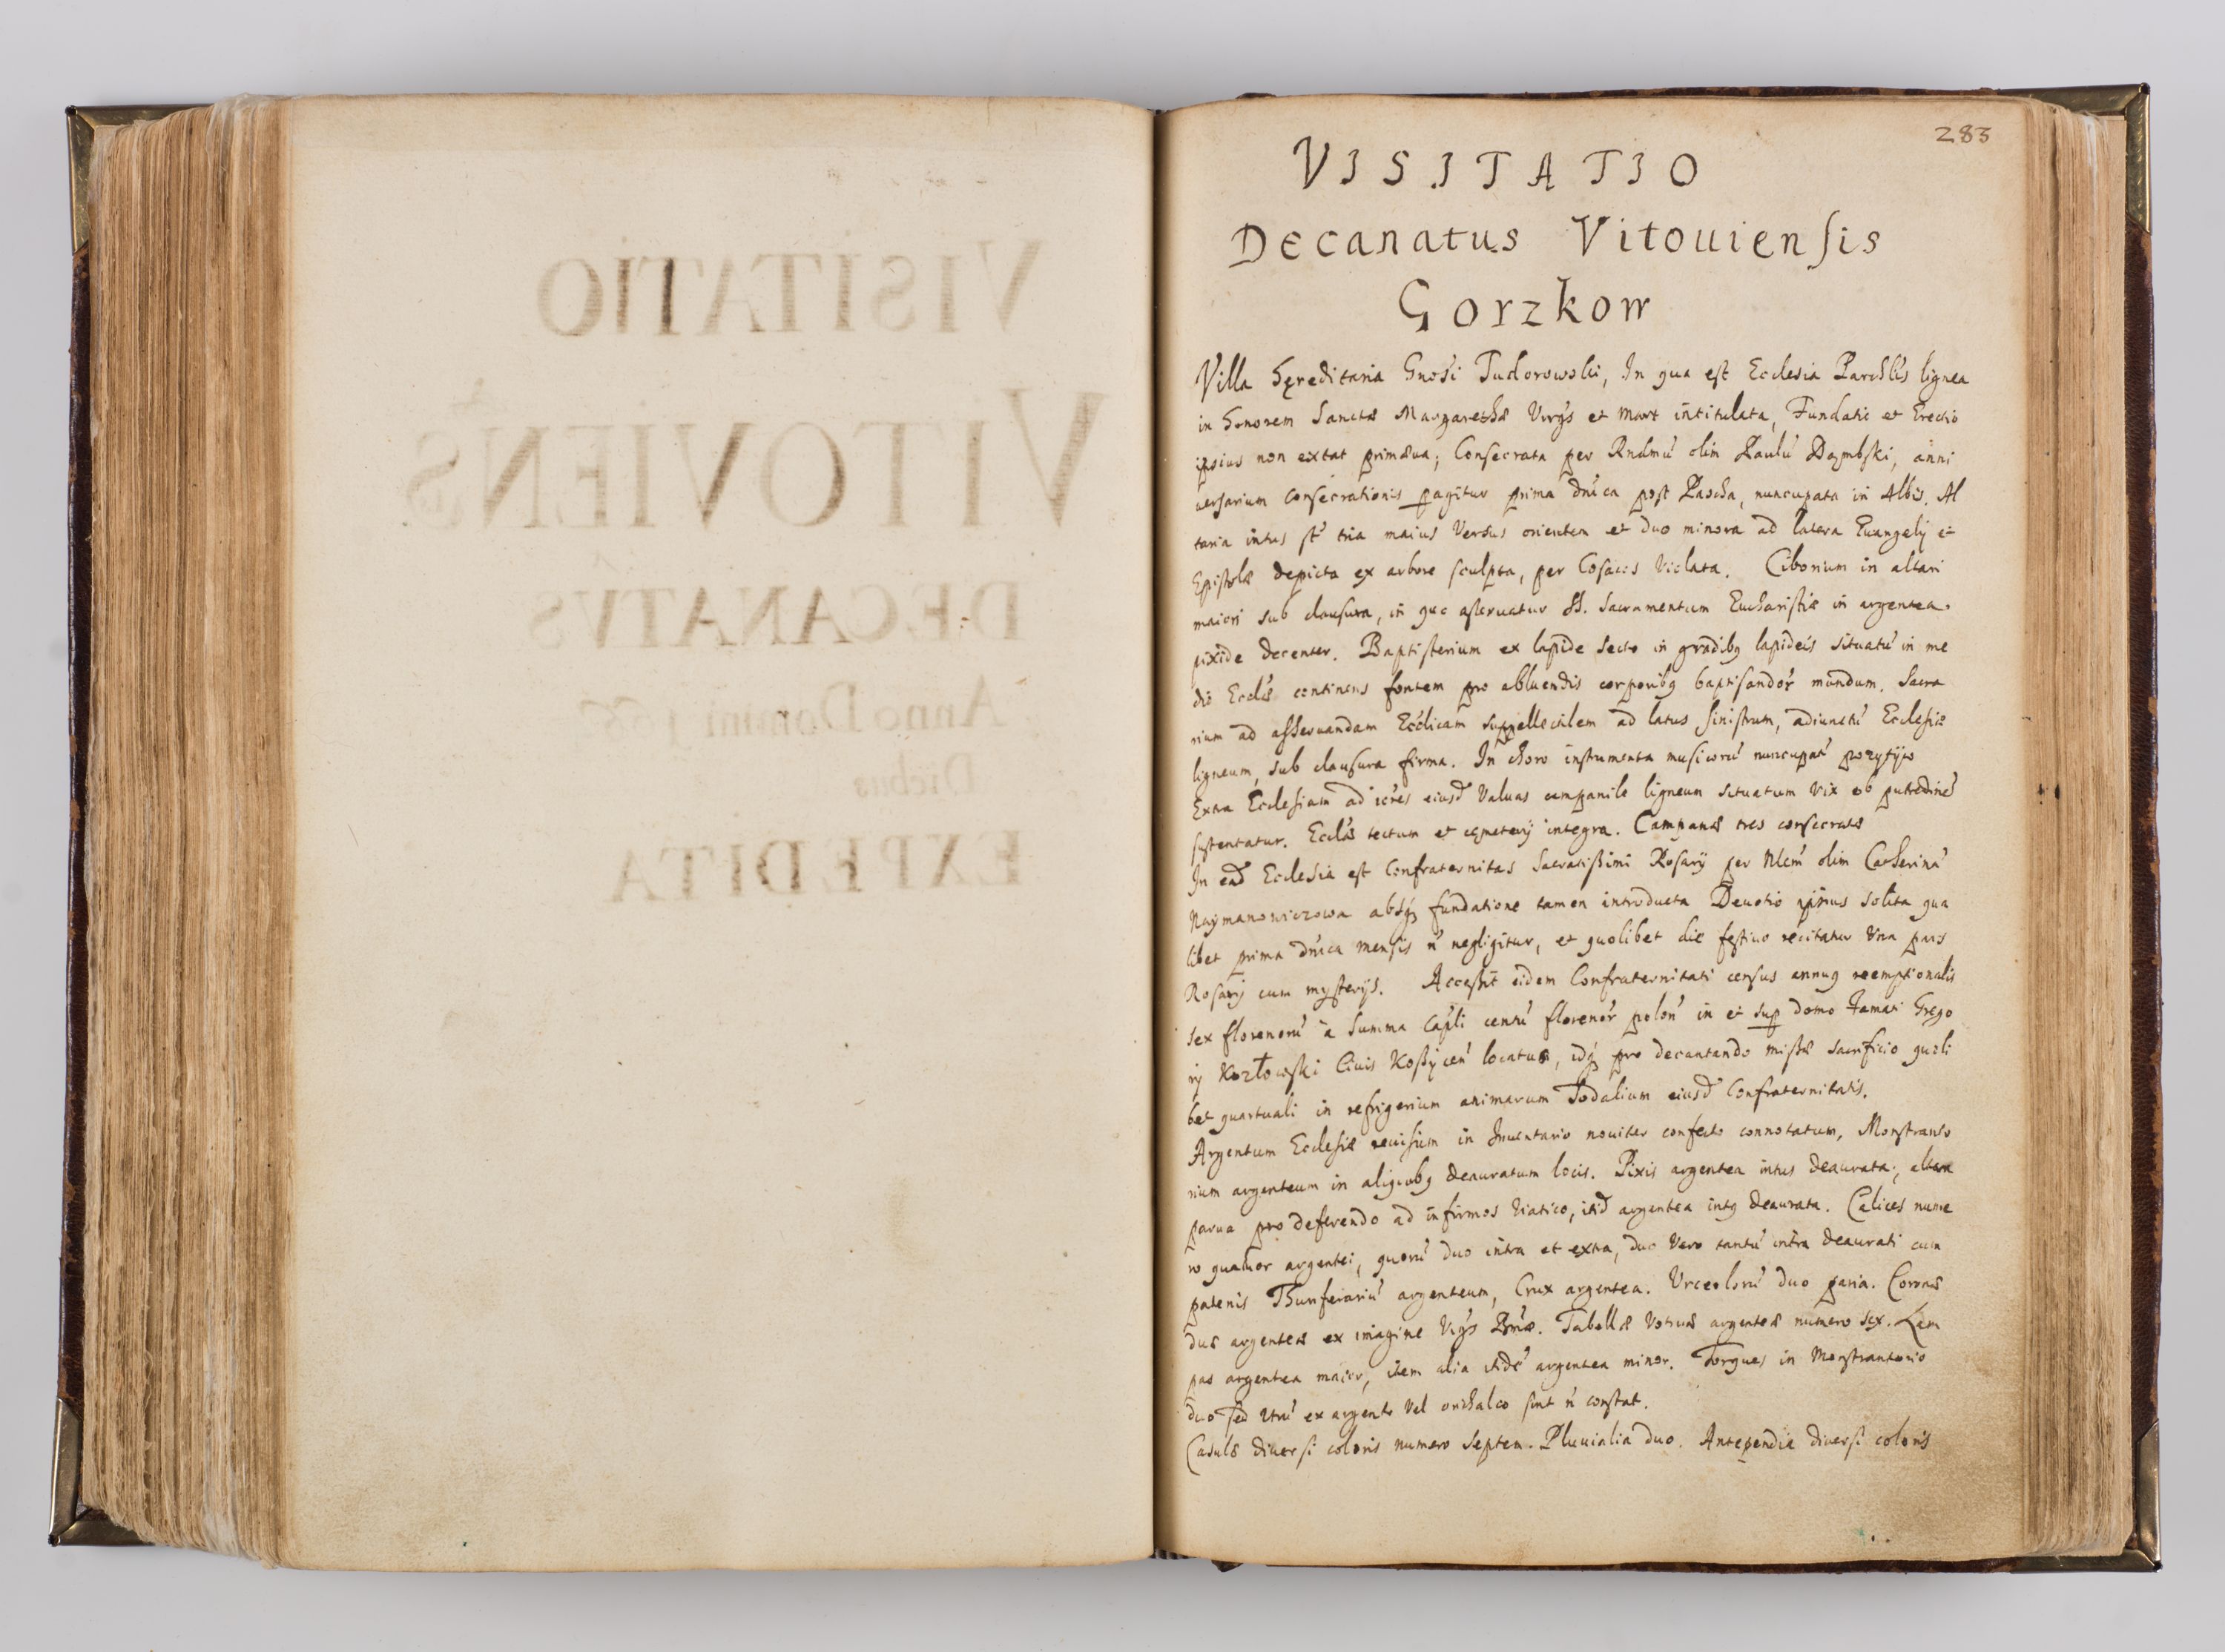 VISITATIO
VITOVIENS
DECANATVS
Anno Domini 166
Diebus
EXPEDITA
283
VISITATIO
Decanatus Vitouiensis
Gorzkow
Villa hęreditaria Gnosi Tudorowski, In qua est Ecclesia Parchlis lignea
in honorem Sanctæ Margarethæ Virgs et Mart intitulata, Fundatio et Erectio
ipsius non extat primæua; Consecrata per Rndmu olim Paulu Dąmbski, anni
uersarium consecrationis pagitur prima dnica post Pascha, nuncupata in Albis. Al
taria intus st tria maius Versus orientem et duo minora ad latera Euangelij et
Epistolæ depicta ex arbore sculpta, per Cosacos Violata. Ciborium in altari
maiori sub clausura, in quo asseruatur SS. Sacramentum Eucharistiæ in argentea
pixide decenter. Baptisterium ex lapide secto in gradibq lapideis situatu in me
dio Ecclæ continens fontem pro abluendis corporibq baptisandor mundum. Sacra
rium ad asseruandam Ecclicam suppellectilem ad latus sinistrum, adiunctu Ecclesiæ
ligneum, sub clausura firma. In choro instrumenta musicoru nuncupat pozytyw
Extra Ecclesiam ad fores eiusd Valuas campanile ligneum situatum vix ob putredine
sustentatur. Ecclæ tectum et cęmeterij integra. Campanæ tres consecratæ
In ead Ecclesia est Confraternitas Sacratissimi Rosarij per Nlem olim Catherina
Naymanowiczowa absq fundatione tamen introducta Deuotio ipsius solita qua
libet prima dnica mensis n negligitur, et quolibet die festiuo recitatur Vna pars
Rosarij cum mysterijs. Accessit eidem Confraternitati census annuq reemptionalis
sex florenoru a Summa Capli centu florenor polon in et sup domo Famati Grego
rij Kozłowski Ciuis Koszycen locatus, idq pro decantando missæ sacrificio quoli
bet quartuali in refrigerium animarum Sodalium eiusd Confraternitatis.
Argentum Ecclesiæ reuisum in Inuentario nouiter confecto connotatum, Monstranto
rium argenteum in aliquibq deauratum locis. Pixis argentea intus deaurata, altera
parua pro deferendo ad infirmos Viatico, itid argentea intq deaurata. Calices nume
ro quatuor argentei, quoru duo intra et extra, duo Vero tantu intra deaurati cum
patenis Thuriferariu argenteum, Crux argentea. Vrceoloru duo paria. Coronæ
duæ argenteæ ex imagine Virgs Bmæ. Tabellæ Votiuæ argenteæ numero sex. Lam
pas argentea maior, item alia itide argentea minor. Torques in Monstrantorio
duo sed vtru ex argento Vel orichalco sint n constat.
Casulæ diuersi coloris numero septem. Pluuialia duo. Antependia diuersi coloris